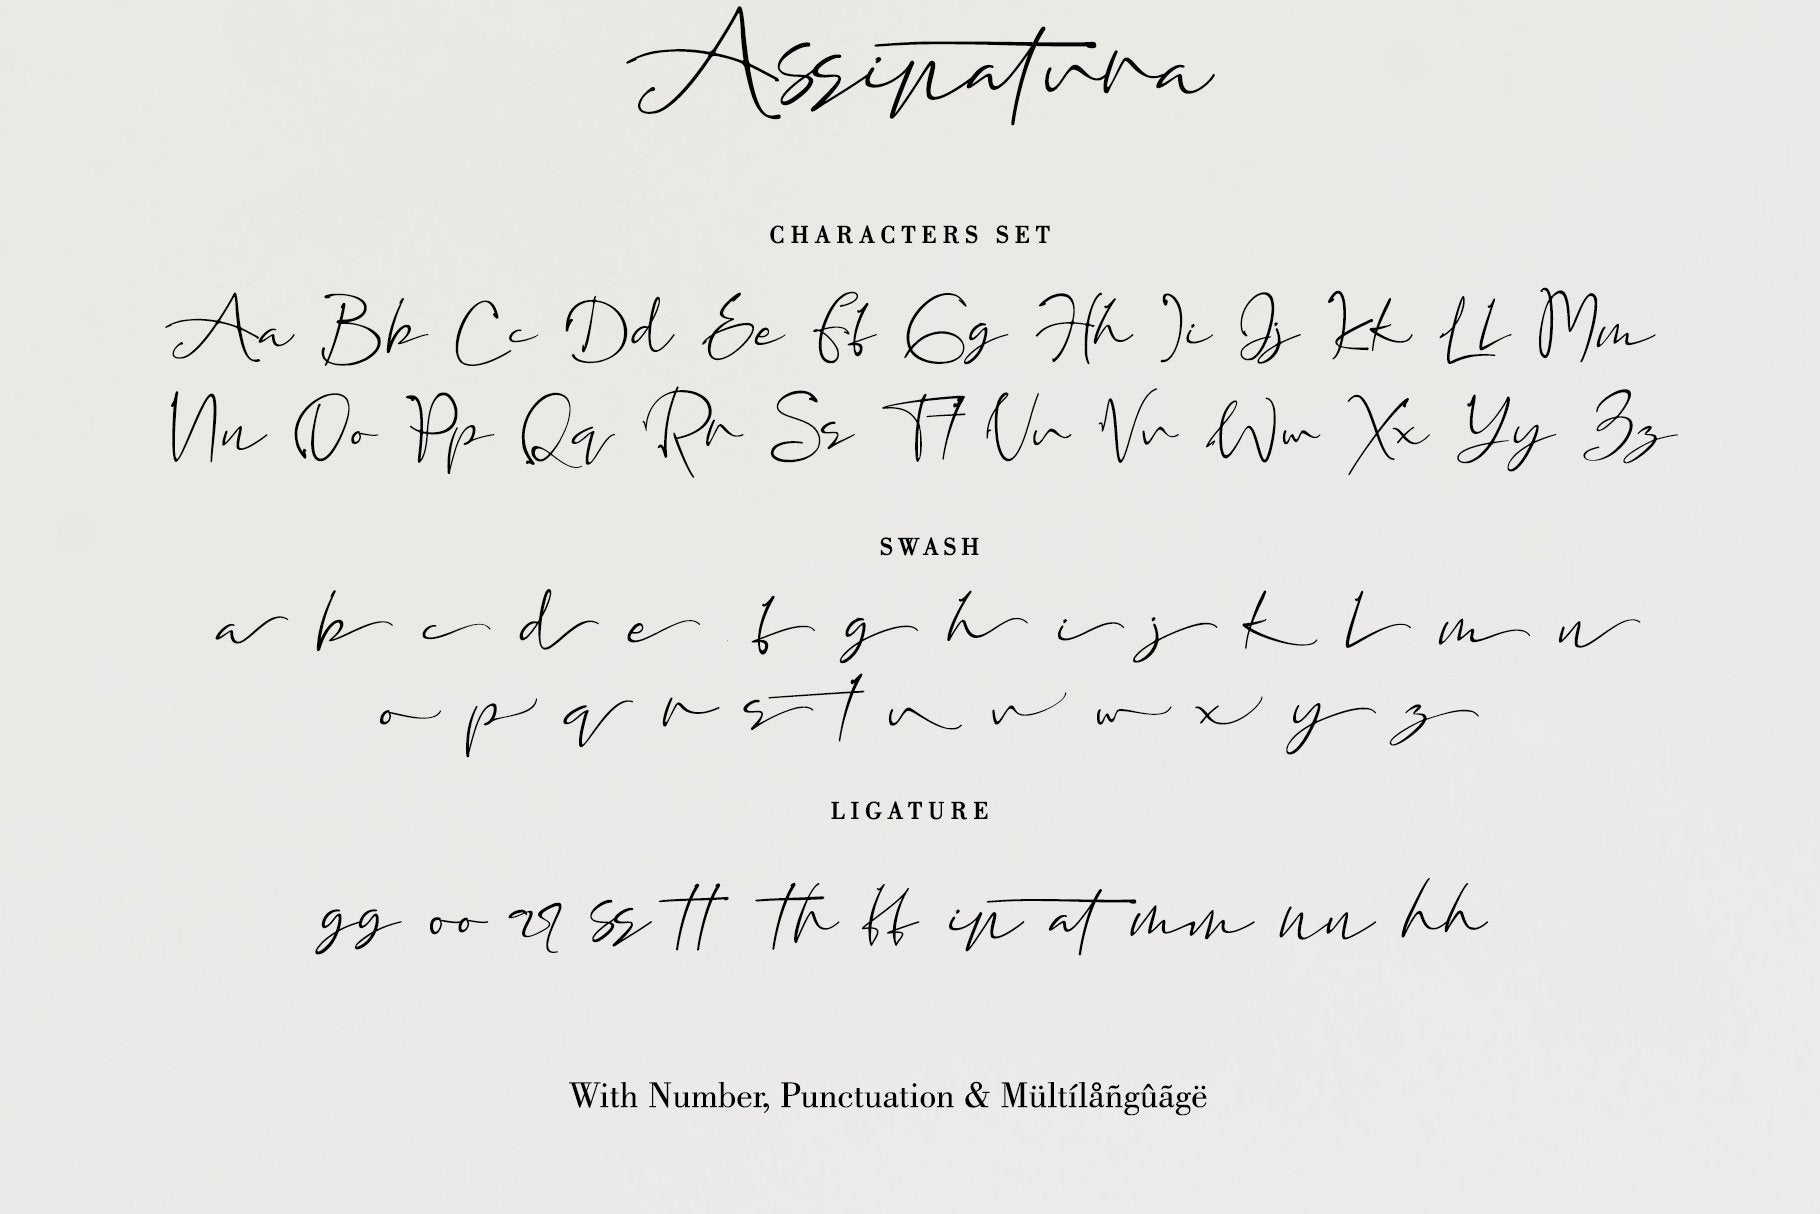 Assinatura
CHARACTERS SET
Aa Bb Cc Dd Ee Ff Gg Hh Ii Jj Kk Ll Mm
Nn Oo Pp Qq Rr Ss Tt Uu Vv Ww Xx Yy Zz
SWASH
a b c d e f g h i j k l m n
o p q r s t u v w x y z
LIGATURE
gg oo ss tt th ff in at mm nn hh
With Number, Punctuation & Mültílåñgûãgë